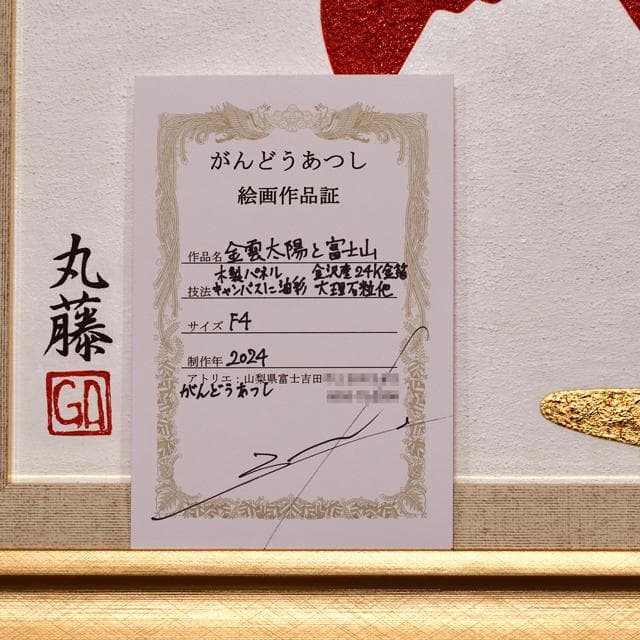 がんどうあつし
絵画作品証
作品名 金雲太陽と富士山
木製パネル 金沢産24K金箔
技法 キャンバスに油彩 大理石粒他
サイズ F4
制作年 2024
アトリエ：山梨県富士吉田
がんどうあつし
丸藤
GA